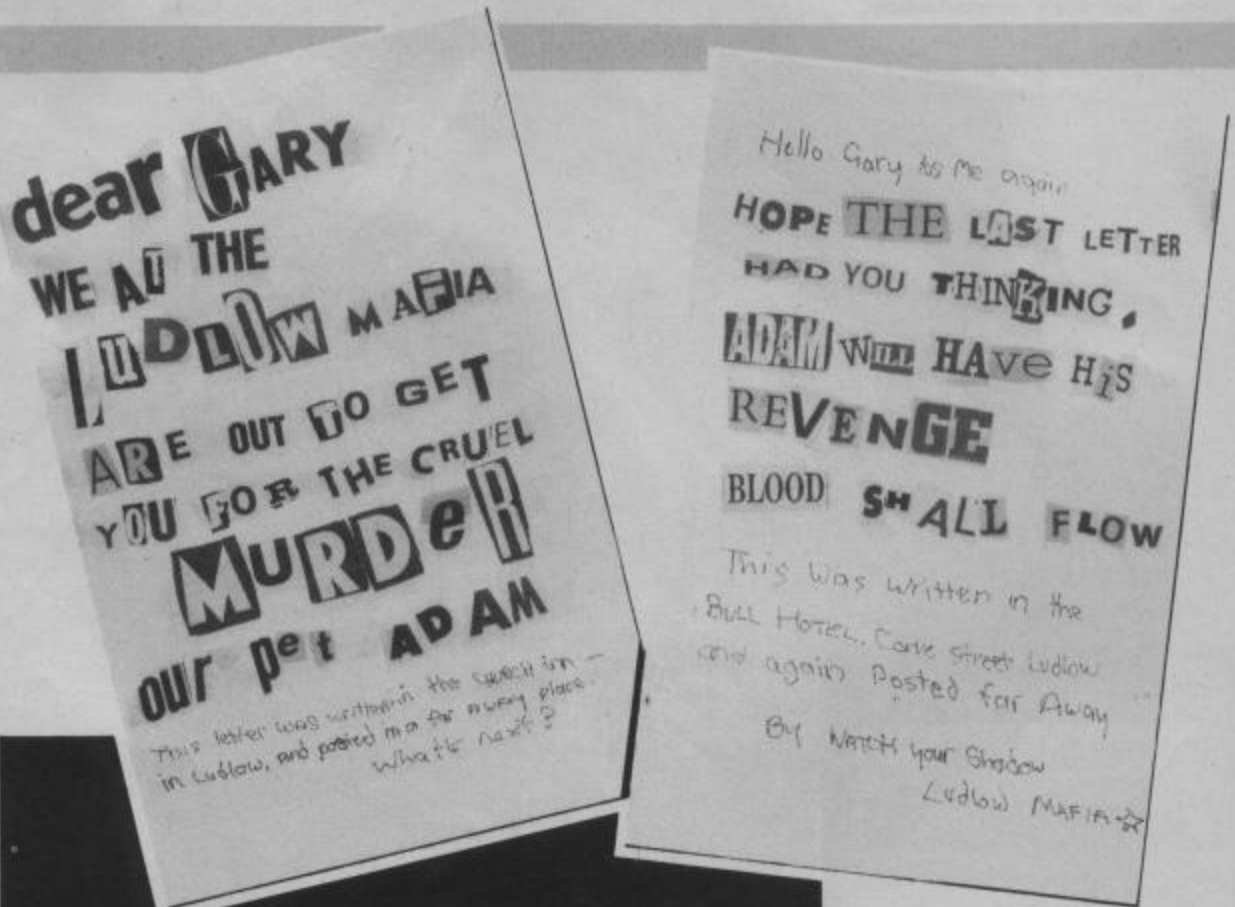 dear GARY
WE AU THE
LUDLOW MAFIA
ARE OUT TO GET
YOU FOR THE CRUEL
MURDeR
our pet ADAM
This letter was written in the CHURCH inn –
in Ludlow, and posted in a far away place.
What's next?
Hello Gary its Me again
HOPE THE LAST LETTER
HAD YOU THINKING,
ADAM WILL HAve HiS
REVENGE
BLOOD SHALL FLOW
This was written in the
BULL HOTEL. Corve street Ludlow
and again Posted far Away
By WATCH your Shadow
Ludlow MAFIA ☆